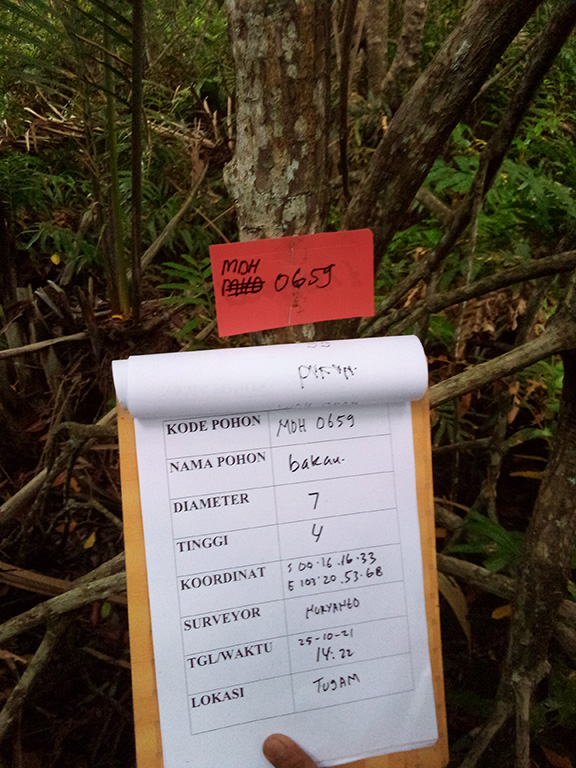 MDH
0659
KODE POHON MDH 0659
NAMA POHON bakau.
DIAMETER 7
TINGGI 4
KOORDINAT S 00.16.16.33
E 103.20.53.68
SURVEYOR MURYANTO
TGL/WAKTU 25-10-21
14:22
LOKASI TUGAM